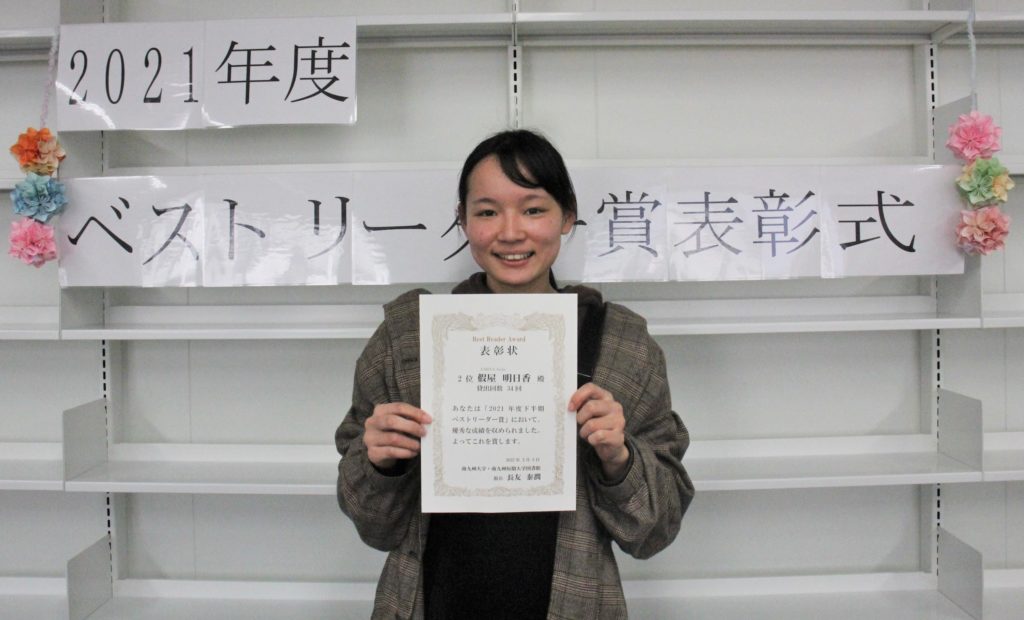 2021年度
ベストリーダー賞表彰式
Best Reader Award
表彰状
2位 假屋 明日香 殿
貸出回数 34回
あなたは「2021 年度下半期
ベストリーダー賞」において、
優秀な成績を収められました。
よってこれを賞します。
南九州大学・南九州短期大学図書館
館長 長友 泰潤